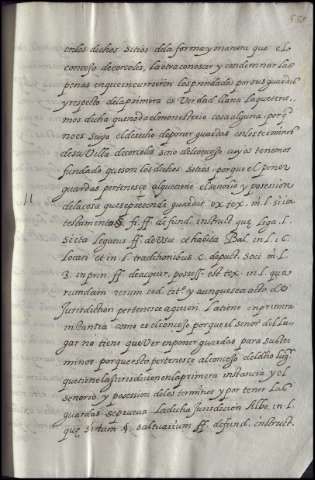 en los dichos sitios dela forma y manera que el o
concejo de corcoles, la otra conoscer y condemnar las
penas en que incurrieren los prendados por sus guardas
y respecto dela primera es Verdad llana la que tene
mos dicha que no da el monesterio cosa alguna, porq
no es suyo el derecho de poner guardas en los termin
de su Villa de corcoles sino del concejo cuyos tenemos
fundado que son los dichos sitios, porque el poner
guardas pertenesce al que tiene el señorio y possesion
dela cosa que se pretende guardar ex tex. in. l.
testamento §. fi. ff. de fund. instruct
sexto legatus ff. de Usu et habita Bal. in. l. i. C.
locati et in. l. traditionibus C. de pact. Soci. in. l.
3. in prin. ff. de acquir. possess. est tex. in. l. qua
rumdam rerum eod. tit. y aunque sea acto de
Jurisdiction pertenesce a quien la tiene in prima
instantia como es el concejo porque el señor del lu
gar no tiene que Ver en poner guardas para su ter
minos porque esto pertenesce al concejo del dho lug
que tiene la Jurisdicion en la primera instancia y el
señorio y possesion delos terminos y por tener las
guardas se prueva la dicha Jurisdicion Albe. in. l.
§. saltuarium ff. de fund. instruct.